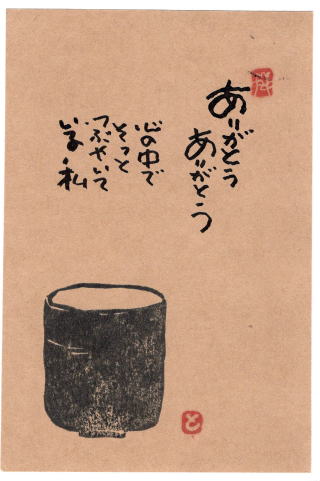 ありがとう
ありがとう
心の中で
そっと
つぶやいて
いる・私
と